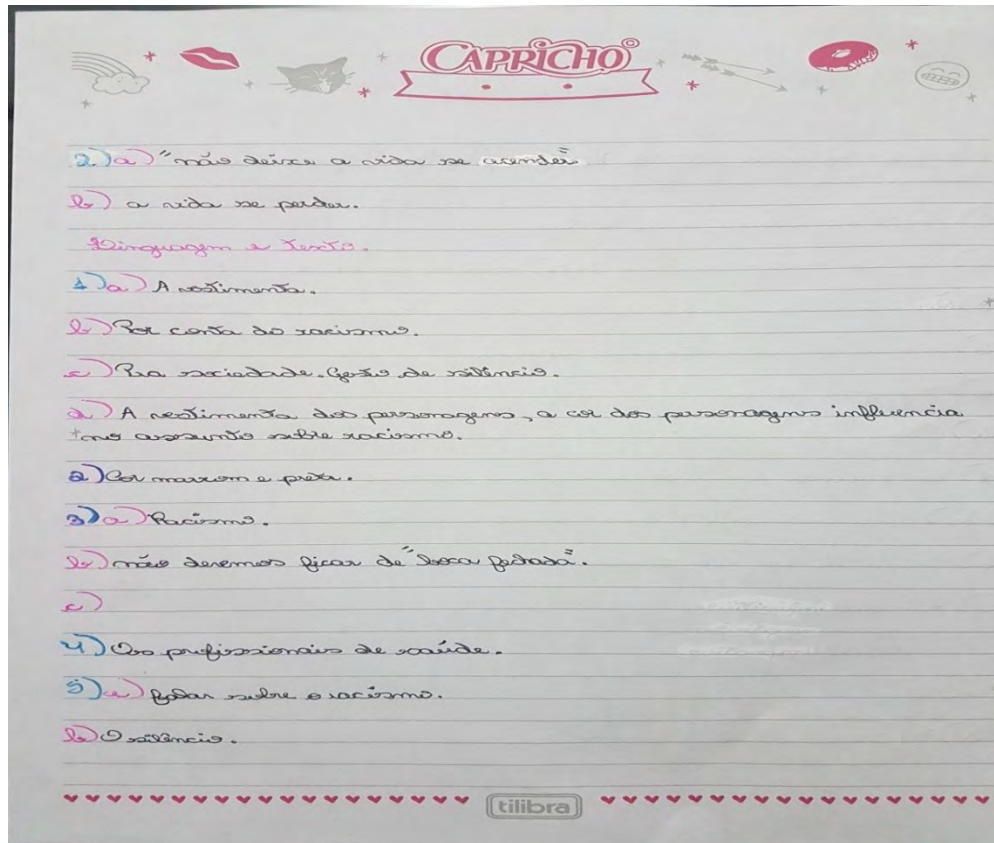 CAPRICHO
2.)a) "não deixe a vida se acender"
b) a vida se perder.
Linguagem e texto.
1)a) A vestimenta.
b) Por conta do racismo.
c) Pra sociedade. Gesto de silêncio.
d) A vestimenta dos personagens, a cor dos personagens influencia
no assunto sobre racismo.
2) Cor marrom e preta.
3)a) Racismo.
b) não devemos ficar de "boca fechada".
c)
4) Os profissionais de saúde.
5)a) falar sobre o racismo.
b) O silêncio.
tilibra